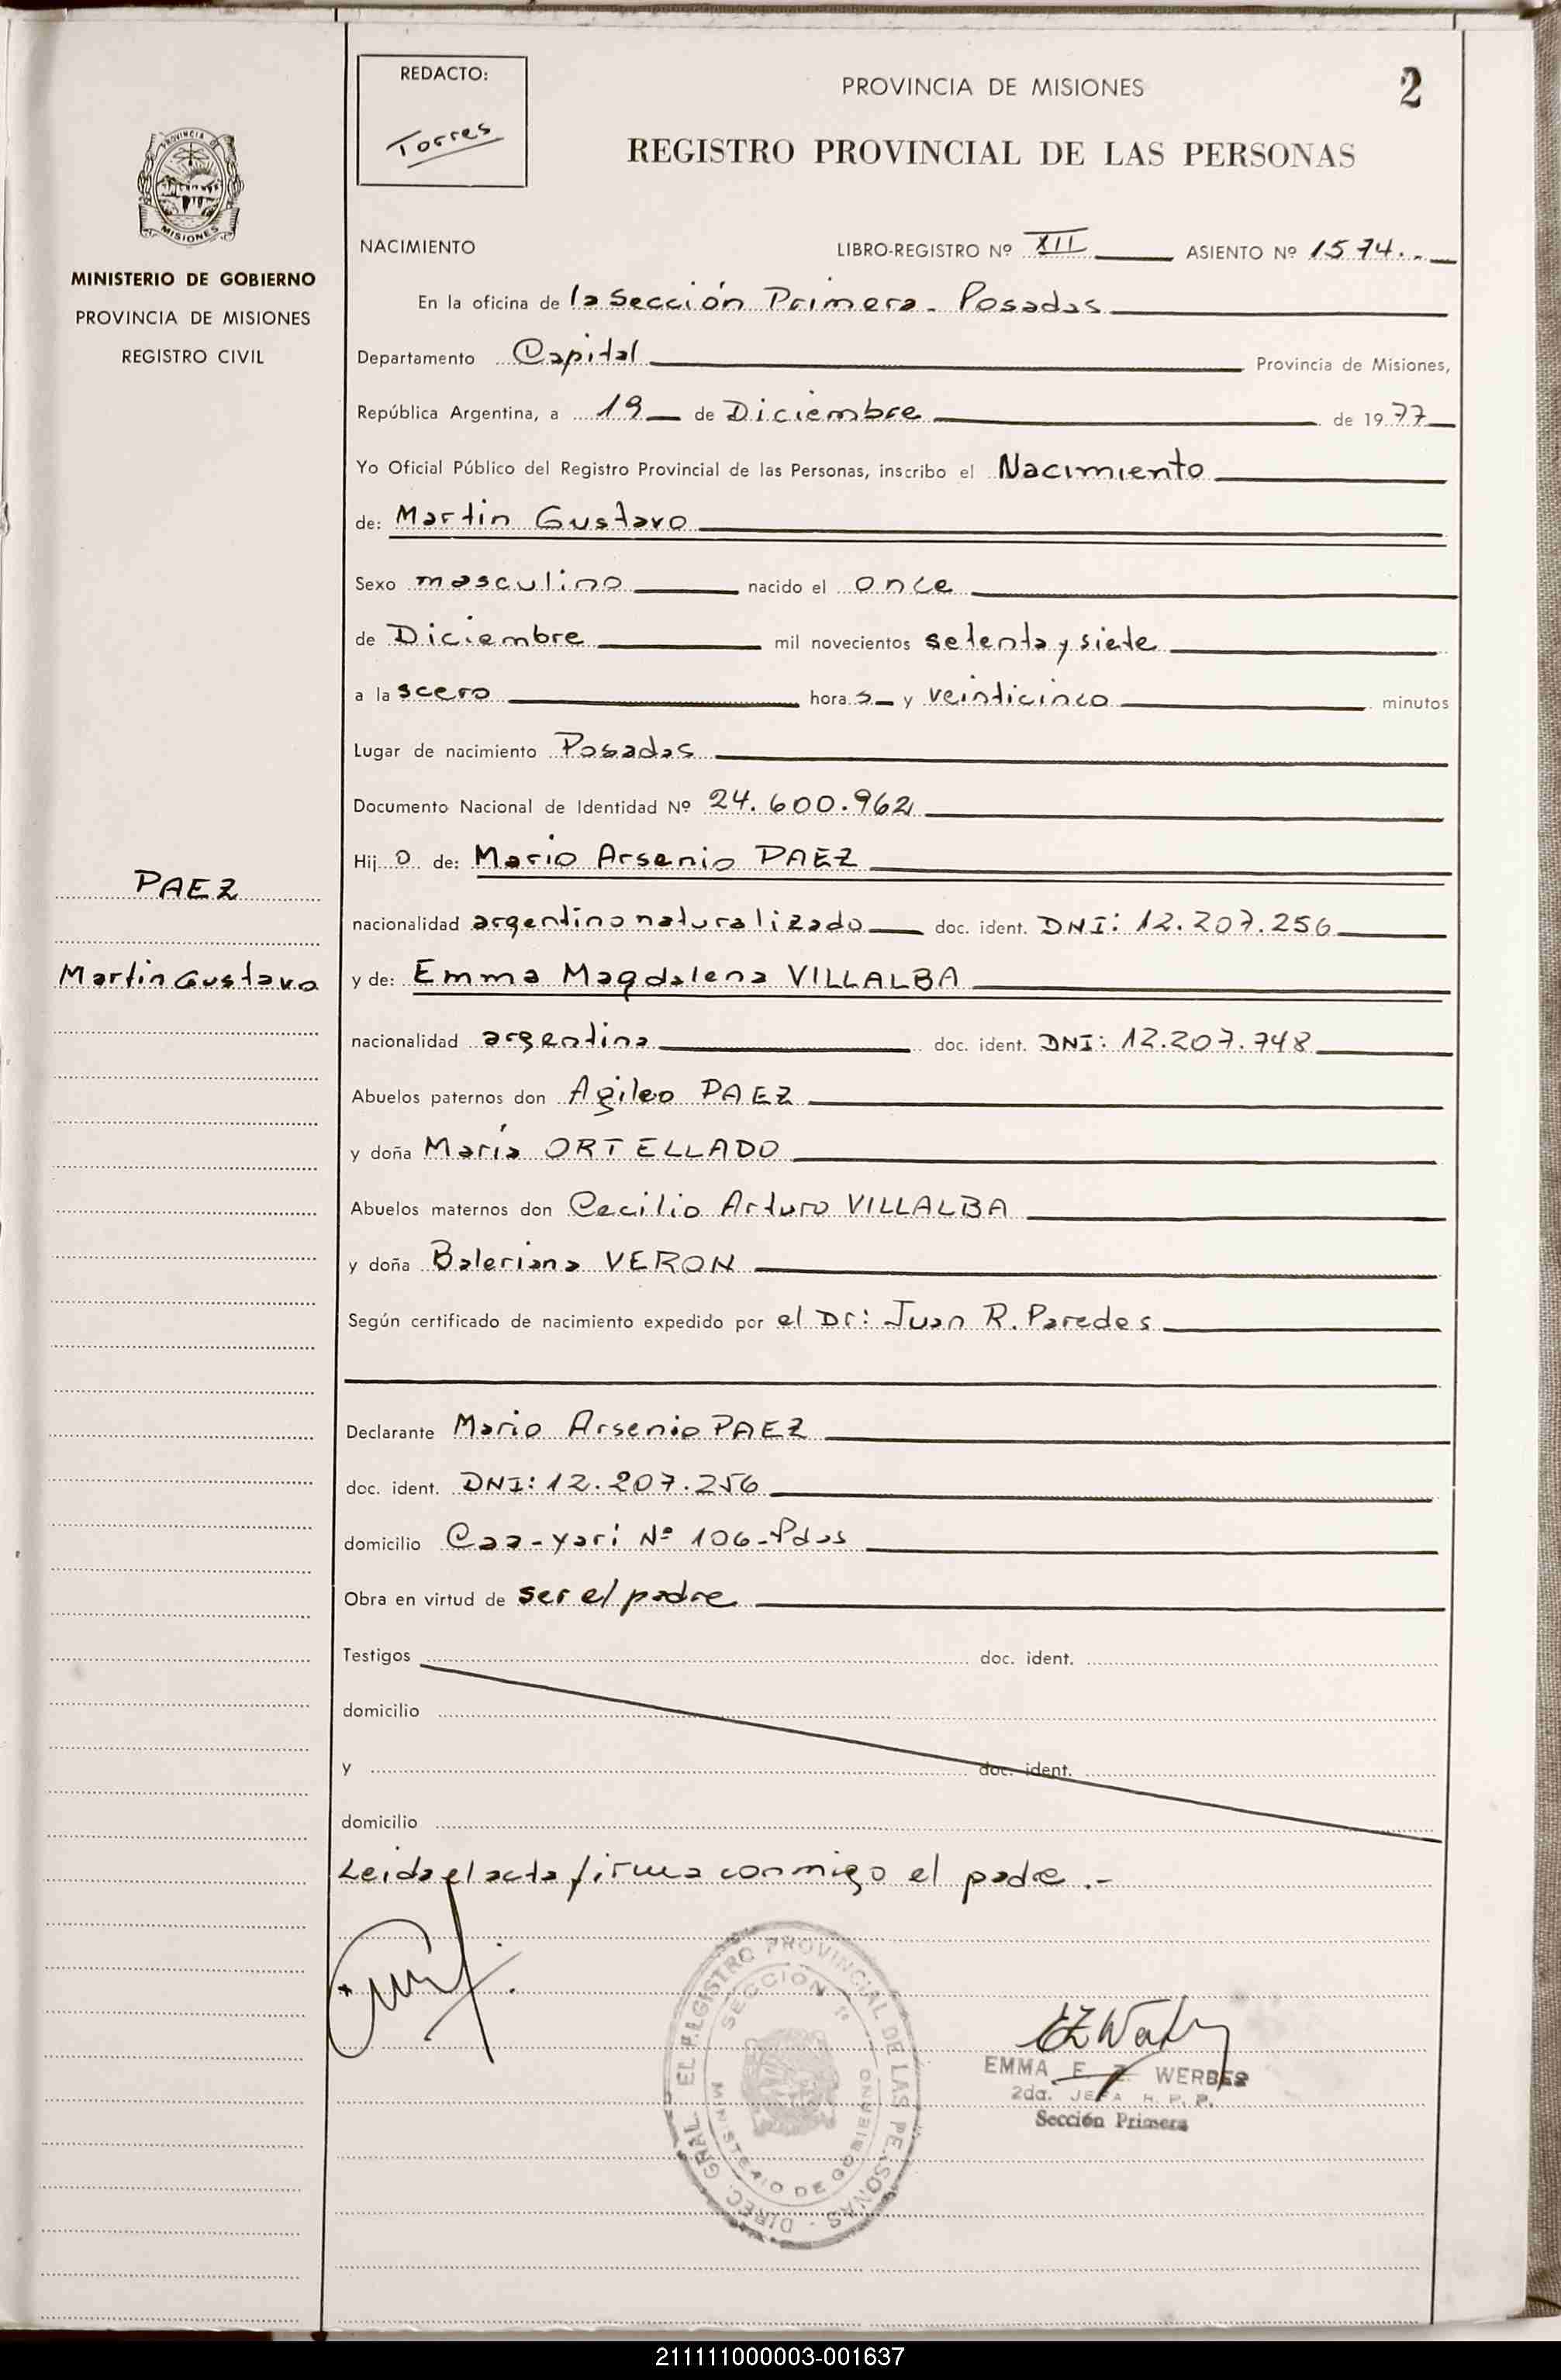 REDACTO:
Torres
PROVINCIA DE MISIONES
2
REGISTRO PROVINCIAL DE LAS PERSONAS
PROVINCIA DE
MISIONES
MINISTERIO DE GOBIERNO
PROVINCIA DE MISIONES
REGISTRO CIVIL
NACIMIENTO LIBRO-REGISTRO Nº XII ASIENTO Nº 1574.
En la oficina de la Sección Primera - Posadas
Departamento Capital Provincia de Misiones,
República Argentina, a 19 de Diciembre de 1977
Yo Oficial Público del Registro Provincial de las Personas, inscribo el Nacimiento
de: Martin Gustavo
Sexo masculino nacido el once
de Diciembre mil novecientos setenta y siete
a las cero horas y veinticinco minutos
Lugar de nacimiento Posadas
Documento Nacional de Identidad Nº 24.600.962
Hijo de: Mario Arsenio PAEZ
PAEZ
nacionalidad argentino naturalizado doc. ident. DNI: 12.207.256
Martin Gustavo
y de: Emma Magdalena VILLALBA
nacionalidad argentina doc. ident. DNI: 12.207.748
Abuelos paternos don Agileo PAEZ
y doña María ORTELLADO
Abuelos maternos don Cecilio Arturo VILLALBA
y doña Baleriana VERON
Según certificado de nacimiento expedido por el Dr: Juan R. Paredes
Declarante Mario Arsenio PAEZ
doc. ident. DNI: 12.207.256
domicilio Caa-yarí Nº 106-Pdas
Obra en virtud de ser el padre
Testigos doc. ident.
domicilio
y doc. ident.
domicilio
Leida el acta firma conmigo el padre.-
DIREC. GRAL. EL REGISTRO PROVINCIAL DE LAS PERSONAS
SECCION 1ª
MINISTERIO DE GOBIERNO
EMMA E. Z. WERBES
2da. JEFA R. P. P.
Sección Primera
211111000003-001637